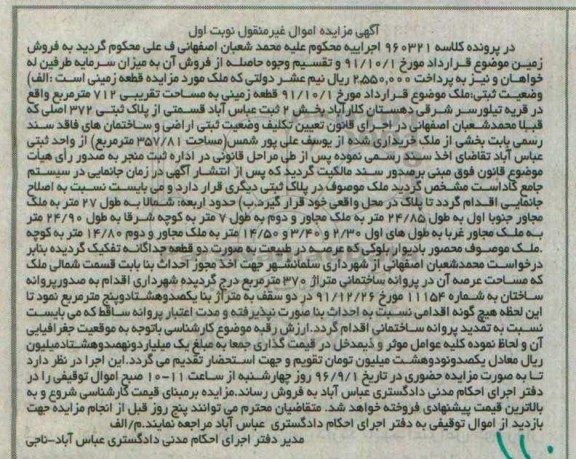 آگهی مزایده اموال غیرمنقول نوبت اول
در پرونده کلاسه ۹۶۰۳۲۱ اجراییه محکوم علیه محمد شعبان اصفهانی ف علی محکوم گردید به فروش
زمین موضوع قرارداد مورخ ۹۱/۱۰/۱ و تقسیم وجوه حاصله از فروش آن به میزان سرمایه طرفین له
خواهان و نیز به پرداخت ۲,۵۵۰,۰۰۰ ریال نیم عشر دولتی که ملک مورد مزایده قطعه زمینی است :الف)
وضعیت ثبتی:ملک موضوع قرارداد مورخ ۹۱/۱۰/۱ قطعه زمینی به مساحت تقریبی ۷۱۲ مترمربع واقع
در قریه تیلورسر شرقی دهستان کلارآباد بخش ۲ ثبت عباس آباد قسمتی از پلاک ثبتی ۳۷۲ اصلی که
قبلا محمدشعبان اصفهانی در اجرای قانون تعیین تکلیف وضعیت ثبتی اراضی و ساختمان های فاقد سند
رسمی بابت بخشی از ملک خریداری شده از یوسف علی پور شمس(مساحت ۳۵۷/۸۱ مترمربع) از واحد ثبتی
عباس آباد تقاضای اخذ سند رسمی نموده پس از طی مراحل قانونی در اداره ثبت منجر به صدور رأی هیأت
موضوع قانون فوق مبنی برصدور سند مالکیت گردید که پس از انتشار آگهی در زمان جانمایی در سیستم
جامع کاداست مشخص گردید ملک موصوف در پلاک ثبتی دیگری قرار دارد و می بایست نسبت به اصلاح
جانمایی اقدام گردد تا پلاک در محل واقعی خود قرار گیرد.ب) حدود اربعه: شمالا به طول ۲۷ متر به ملک
مجاور جنوبا اول به طول ۲۴/۸۵ متر به ملک مجاور و دوم به طول ۷ متر به کوچه شرقا به طول ۲۴/۹۰ متر
به ملک مجاور غربا به طول های اول ۲/۳۰ و ۳/۴۰ و ۱۴/۵۰ متر به ملک مجاور و دوم ۱۴/۸۰ متر به کوچه
.ملک موصوف محصور بادیوار بلوکی که عرصه در طبیعت به صورت دو قطعه جداگانه تفکیک گردیده بنابر
درخواست محمدشعبان اصفهانی از شهرداری سلمانشهر جهت اخذ مجوز احداث بنا بابت قسمت شمالی ملک
که مساحت عرصه آن در پروانه ساختمانی متراژ ۳۷۰ مترمربع درج گردیده شهرداری اقدام به صدورپروانه
ساختان به شماره ۱۱۱۵۴ مورخ ۹۱/۱۲/۲۶ در دو سقف به متراژ بنا یکصدوهشتادوپنج مترمربع نمود تا
این لحظه هیچ گونه اقدامی نسبت به احداث بنا صورت نپذیرفته و مدت اعتبار پروانه ساقط که می بایست
نسبت به تمدید پروانه ساختمانی اقدام گردد.ارزش رقبه موضوع کارشناسی باتوجه به موقعیت جغرافیایی
آن و لحاظ نموده کلیه عوامل موثر و ذیمدخل در قیمت گذاری جمعا به مبلغ یک میلیاردونهصدوهشتادمیلیون
ریال معادل یکصدونودوهشت میلیون تومان تقویم و جهت استحضار تقدیم می گردد.این اجرا در نظر دارد
تا به صورت مزایده حضوری در تاریخ ۹۶/۹/۱ روز چهارشنبه از ساعت ۱۱-۱۰ صبح اموال توقیفی را در
دفتر اجرای احکام مدنی دادگستری عباس آباد به فروش رساند.مزایده برمبنای قیمت کارشناسی شروع و به
بالاترین قیمت پیشنهادی فروخته خواهد شد. متقاضیان محترم می توانند پنج روز قبل از انجام مزایده جهت
بازدید از اموال توقیفی به دفتر اجرای احکام دادگستری عباس آباد مراجعه نمایند.م/الف
مدیر دفتر اجرای احکام مدنی دادگستری عباس آباد-ناجی